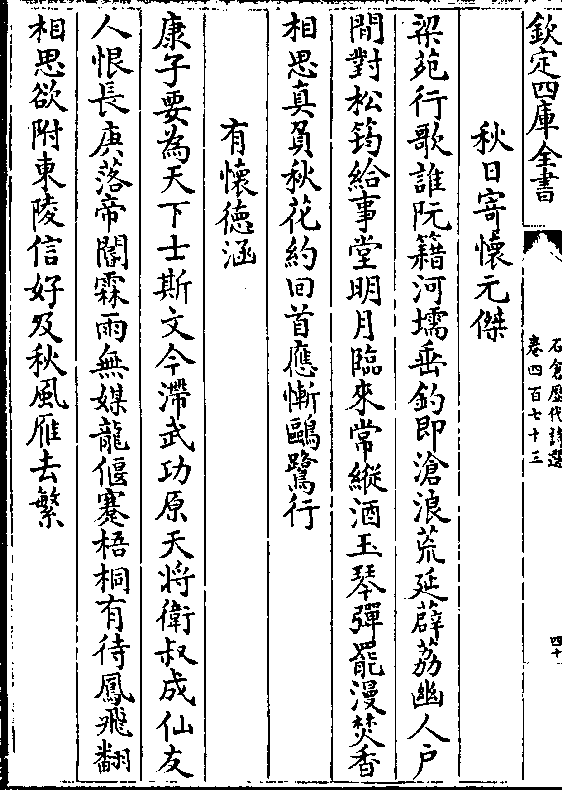 欽定四庫全書
石倉歷代詩選
卷四百七十三
四十
秋日寄懷元傑
梁苑行歌誰阮籍河壖垂釣即滄浪荒延薜荔幽人户
閒對松筠給事堂明月臨來常縱酒玉琴彈罷漫焚香
相思真負秋花約回首應慚鷗鷺行
有懷德涵
康子要為天下士斯文今滯武功原天將衛叔成仙友
人恨長庚落帝閽霖雨無媒龍偃蹇梧桐有待鳳飛翻
相思欲附東陵信好及秋風雁去繁